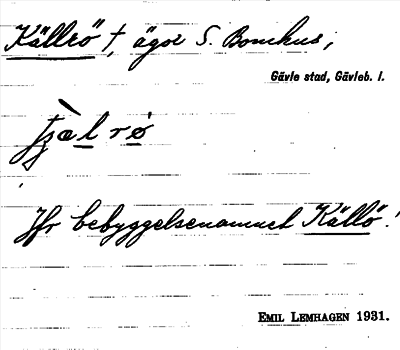 Källrö †, ägor S. Bomhus;
Gävle stad, Gävleb. l.
Jfr bebyggelsenamnet Källö!
EMIL LEMHAGEN 1931.